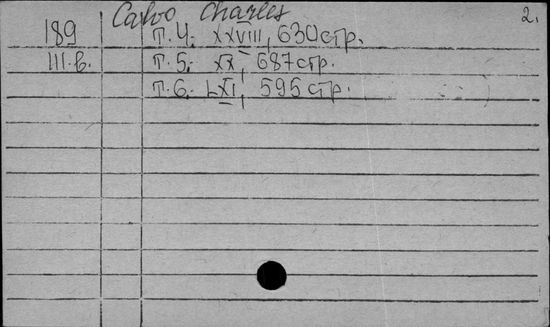 Calvo Charles 2.
189 т.4: XXVIII, 630 стр.
III.в. т.5: XX, 687 стр.
т.6: LXI, 595 стр.